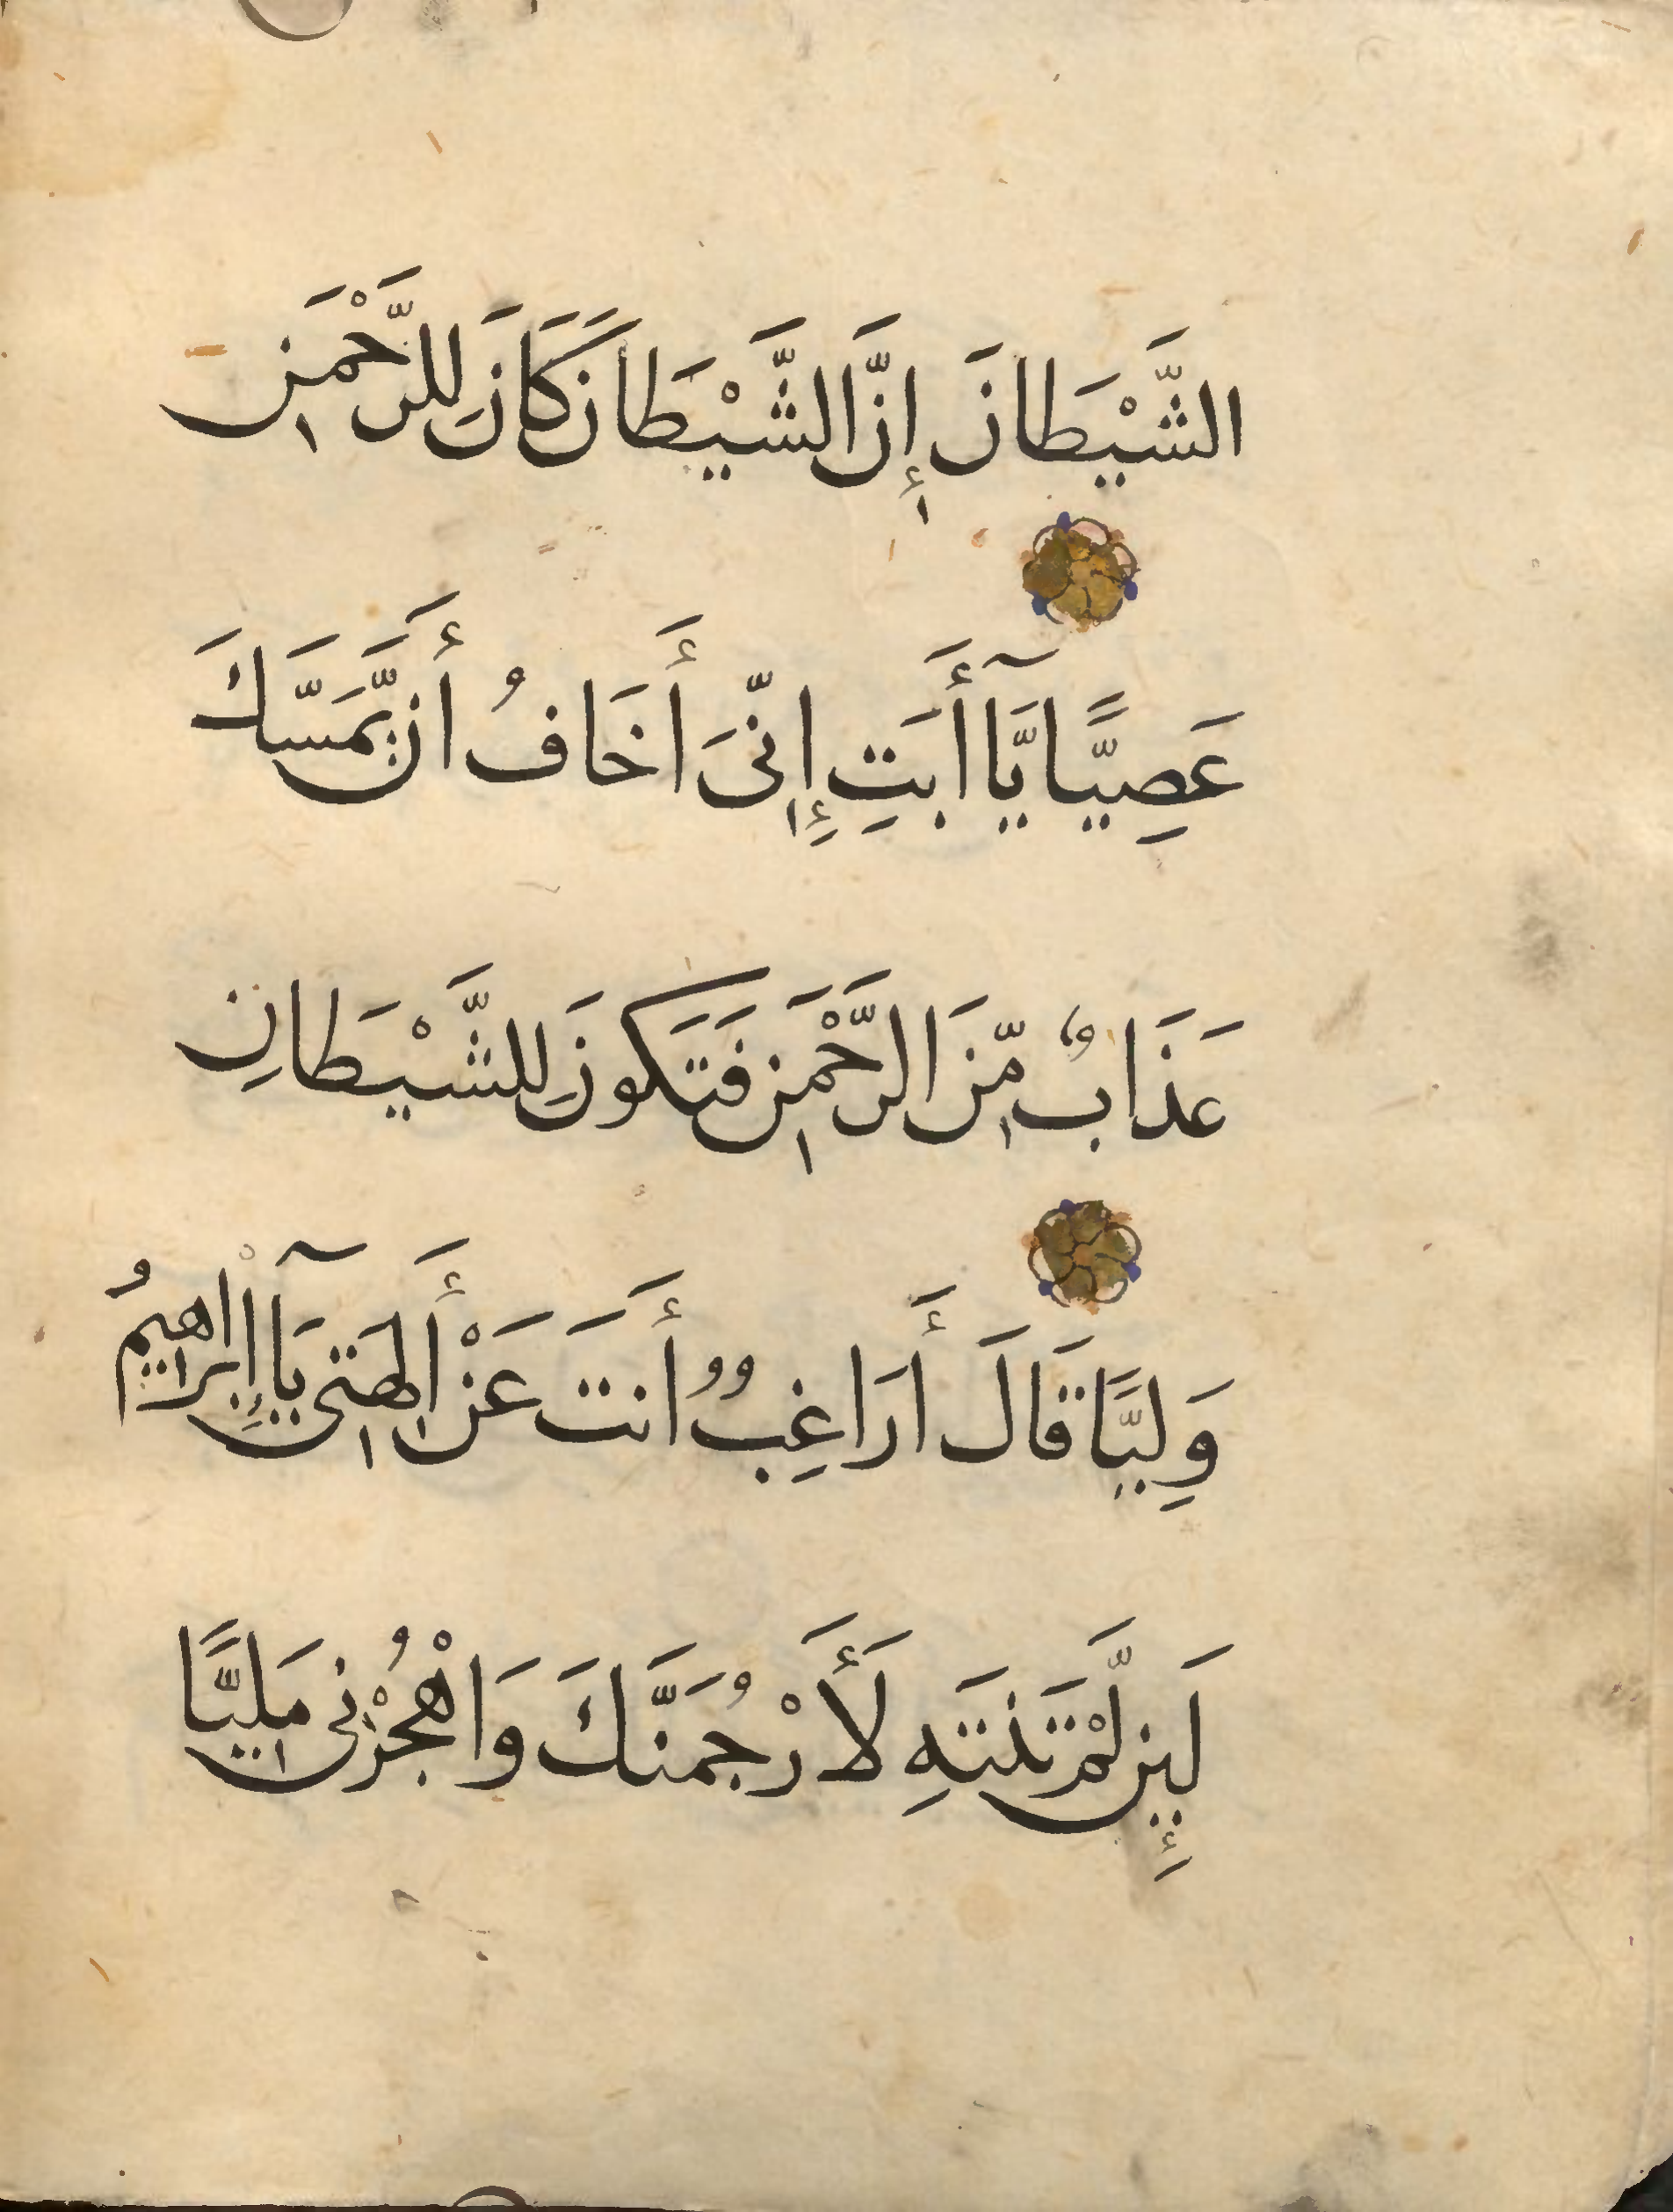 الشَّيْطَانَ إِنَّ الشَّيْطَانَ كَانَ لِلرَّحْمَنِ
عَصِيًّا يَّآ أَبَتِ إِنِّىَ أَخَافُ أَن يَّمَسَّكَ
عَذَابٌ مِّنَ الرَّحْمَنِ فَتَكُونَ لِلشَّيْطَانِ
وَلِيًّا قَالَ أَرَاغِبٌ أَنتَ عَنْ أَلِهَتِى يَآ إِبْرَاهِيمُ
لَئِن لَّمْ تَنتَهِ لَأَرْجُمَنَّكَ وَاهْجُرْنِى مَلِيًّا